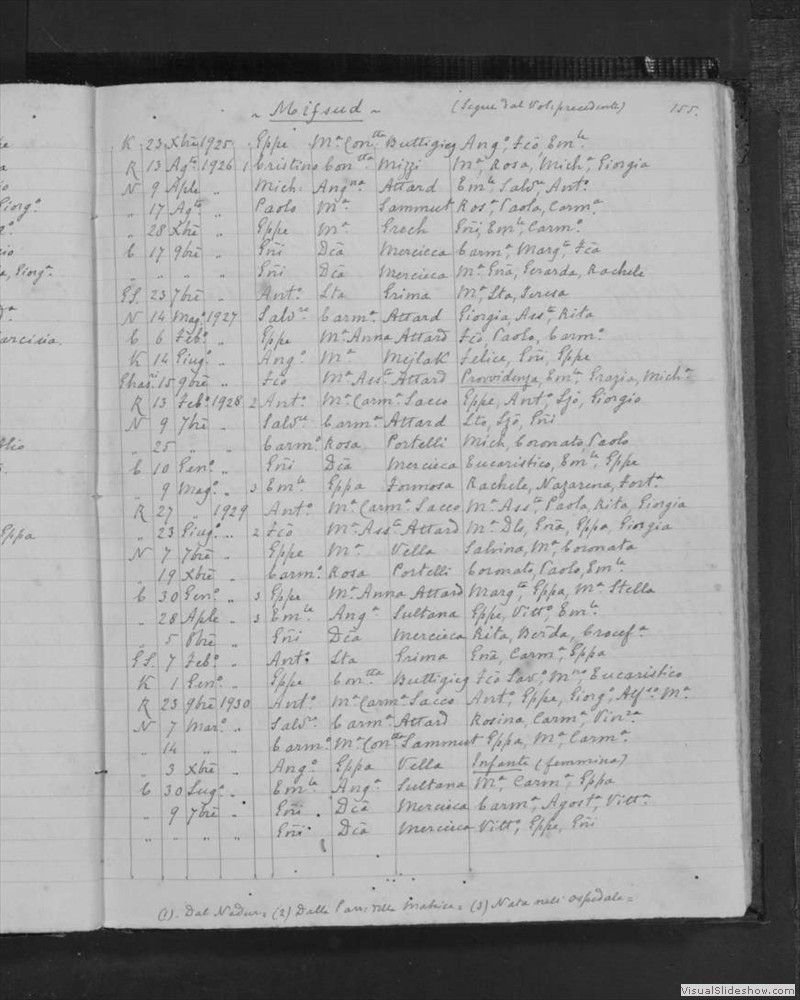 Mifsud (Segue dal Vol: precedente) 155.
K 23 Xbre 1925 Eppe Ma Contta Buttigieg Ango, Fco, Emle
R 13 Agto 1926 1 Cristino Contta Mizzi Ma, Rosa, Micha, Giorgia
N 9 Aple „ Mich: Angna Attard Emle, Salva, Anto
„ 17 Agto „ Paolo Ma Sammut Rosa, Paola, Carma
„ 28 Xbre „ Eppe Ma Grech Gni, Emle, Carmo
C 17 9bre „ Gni Dca Mercieca Carma, Margta, Fca
„ „ „ „ Gni Dca Mercieca Ma Gna, Gerarda, Rachele
GS. 23 7bre „ Anto Lta Grima Ma, Lta, Teresa
N 14 Mago 1927 Salvre Carma Attard Giorgia, Assta, Rita
C 6 Febo „ Eppe Ma Anna Attard Fco, Paolo, Carmo
K 14 Giugo „ Ango Ma Mejlak Felice, Gni, Eppe
Ghasri 15 9bre „ Fco Ma Assta Attard Provvidenza, Emla, Grazia, Micha
R 13 Febo 1928 2 Anto Ma Carma Sacco Eppe, Anto, Lzo, Giorgio
N 9 7bre „ Salvre Carma Attard Lto, Lzo, Gni
„ 25 „ „ Carmo Rosa Portelli Mich, Coronato, Paolo
C 10 Geno „ Gni Dca Mercieca Eucaristico, Emle, Eppe
„ 9 Mago „ 3 Emle Eppa Formosa Rachele, Nazarena, Forta
R 27 „ 1929 Anto Ma Carma Sacco Ma Assta, Paola, Rita, Giorgia
„ 23 Giugo „ 2 Fco Ma Assta Attard Ma Dls, Gna, Eppa, Giorgia
N 7 7bre „ Eppe Ma Vella Salvina, Ma, Coronata
„ 19 Xbre „ Carmo Rosa Portelli Coronato, Paolo, Emle
C 30 Geno „ 3 Eppe Ma Anna Attard Margta, Eppa, Ma Stella
„ 28 Aple „ 3 Emle Anga Sultana Eppe, Vitto, Emle
„ 5 8bre „ Gni Dca Mercieca Rita, Berda, Crocefa
GS. 7 Febo „ Anto Lta Grima Gna, Carma, Eppa
K 1 Geno „ Eppe Contta Buttigieg Fco Savo, Mno, Eucaristico
R 23 9bre 1930 Anto Ma Carma Sacco Anto, Eppe, Giorgo, Alfso, Ma
N 7 Maro „ Salvre Carma Attard Rosina, Carma, Vinza
„ 14 „ „ Carmo Ma Contta Sammut Eppa, Ma, Carma
„ 3 Xbre „ Ango Eppa Vella Infante (femmina)
C 30 Lugo „ Emle Anga Sultana Ma, Carma, Eppa
„ 9 7bre „ Gni Dca Mercieca Carma, Agosta, Vitta
„ „ „ „ Gni Dca Mercieca Vitto, Eppe, Gni
(1) Dal Nadur = (2) Dalla Parr: della Matrice = (3) Nata nell' ospedale =
VisualSlideshow.com